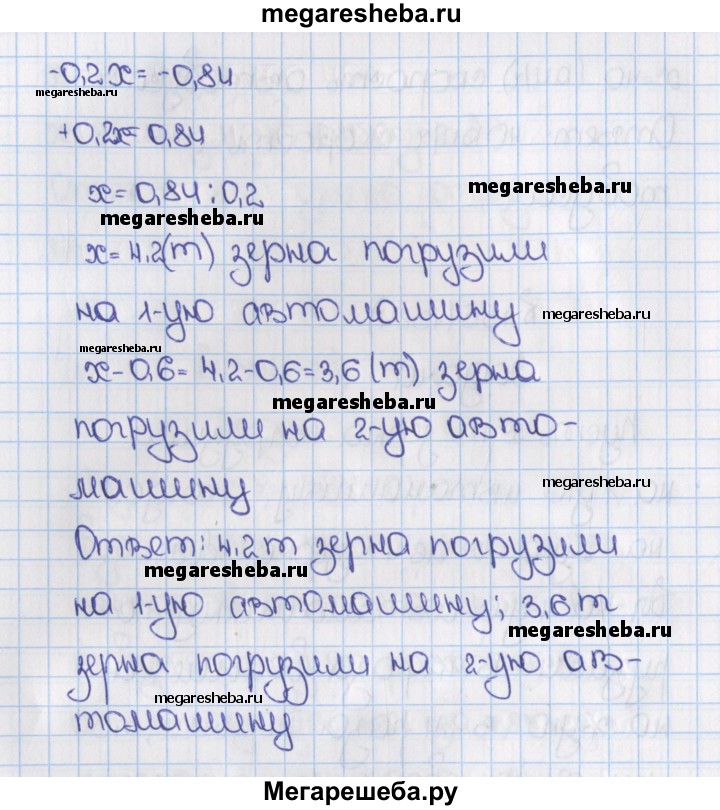 megaresheba.ru
-0,2x=-0,84
megaresheba.ru
+0,2x=0,84
x=0,84:0,2
megaresheba.ru
megaresheba.ru
x=4,2(т) зерна погрузили
на 1-ую автомашину
megaresheba.ru
megaresheba.ru
x-0,6=4,2-0,6=3,6(т) зерна
megaresheba.ru
погрузили на 2-ую авто-
машину
megaresheba.ru
Ответ: 4,2т зерна погрузили
megaresheba.ru
на 1-ую автомашину; 3,6т
megaresheba.ru
зерна погрузили на 2-ую ав-
megaresheba.ru
томашину
Мегарешеба.ру